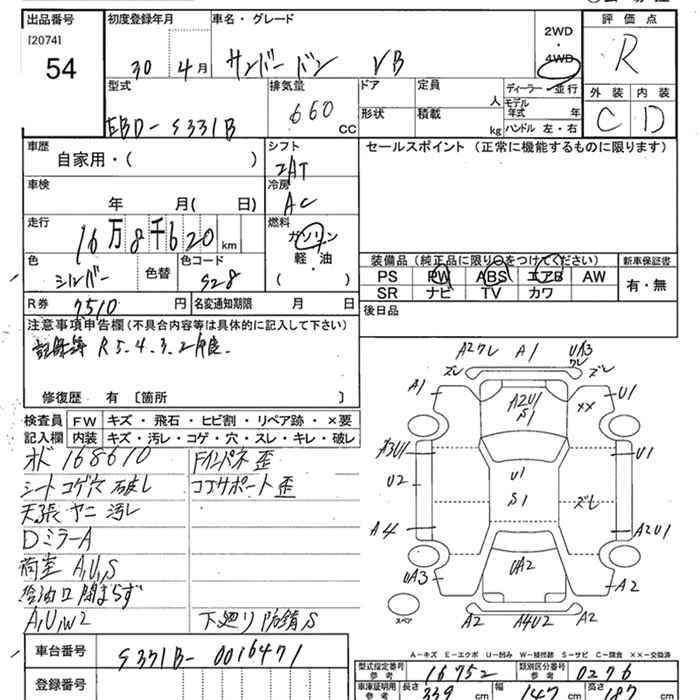 出品番号
[2074]
54
初度登録年月
30 4月
車名・グレード
サンバーバン VB
2WD
・
4WD
評価点
R
外装 内装
C D
型式
EBD-S331B
排気量
660 cc
ドア
形状
定員 人
積載 kg
ディーラー・並行
モデル年式 年
ハンドル 左・右
車歴
自家用・( )
シフト
2AT
セールスポイント (正常に機能するものに限ります)
車検
年 月( 日)
冷房
AC
走行
16万8千620km
燃料
ガソリン
軽・油
( )
色
シルバー
色替
色コード
S28
装備品 (純正品に限り○をつけてください)
PS PW ABS エアB AW
SR ナビ TV カワ
新車保証書
有・無
R券 7510円
名変通知期限 月 日
後日品
注意事項申告欄(不具合内容等は具体的に記入して下さい)
記録簿 R5.4.3.2
修復歴 有 〔箇所 〕
検査員記入欄
FW キズ・飛石・ヒビ割・リペア跡・×要
内装 キズ・汚レ・コゲ・穴・スレ・キレ・破レ
オド 168610
シートコゲ穴 破レ
天張 ヤニ 汚レ
DミラーA
荷室 A,U,S
給油口閉まらず
A,U,W2
Fインパネ歪
コアサポート歪
下廻り防錆S
A2ワレ A1 UA3
ワレ
ズレ ズレ
A1 A2U1 S1 ×× U1
A3U1 U1
U2 U1 S1 ズレ
A4 A2U1
UA3 UA2 A2
A2 A4U2 A2
スペア
A-キズ E-エクボ U-凹み W-補修跡 S-サビ C-腐食 ××-交換済
車台番号
S331B-0016471
登録番号
型式指定番号 参考
16752
類別区分番号 参考
0276
車庫証明用 参考
長さ 339 cm
幅 147 cm
高さ 187 cm